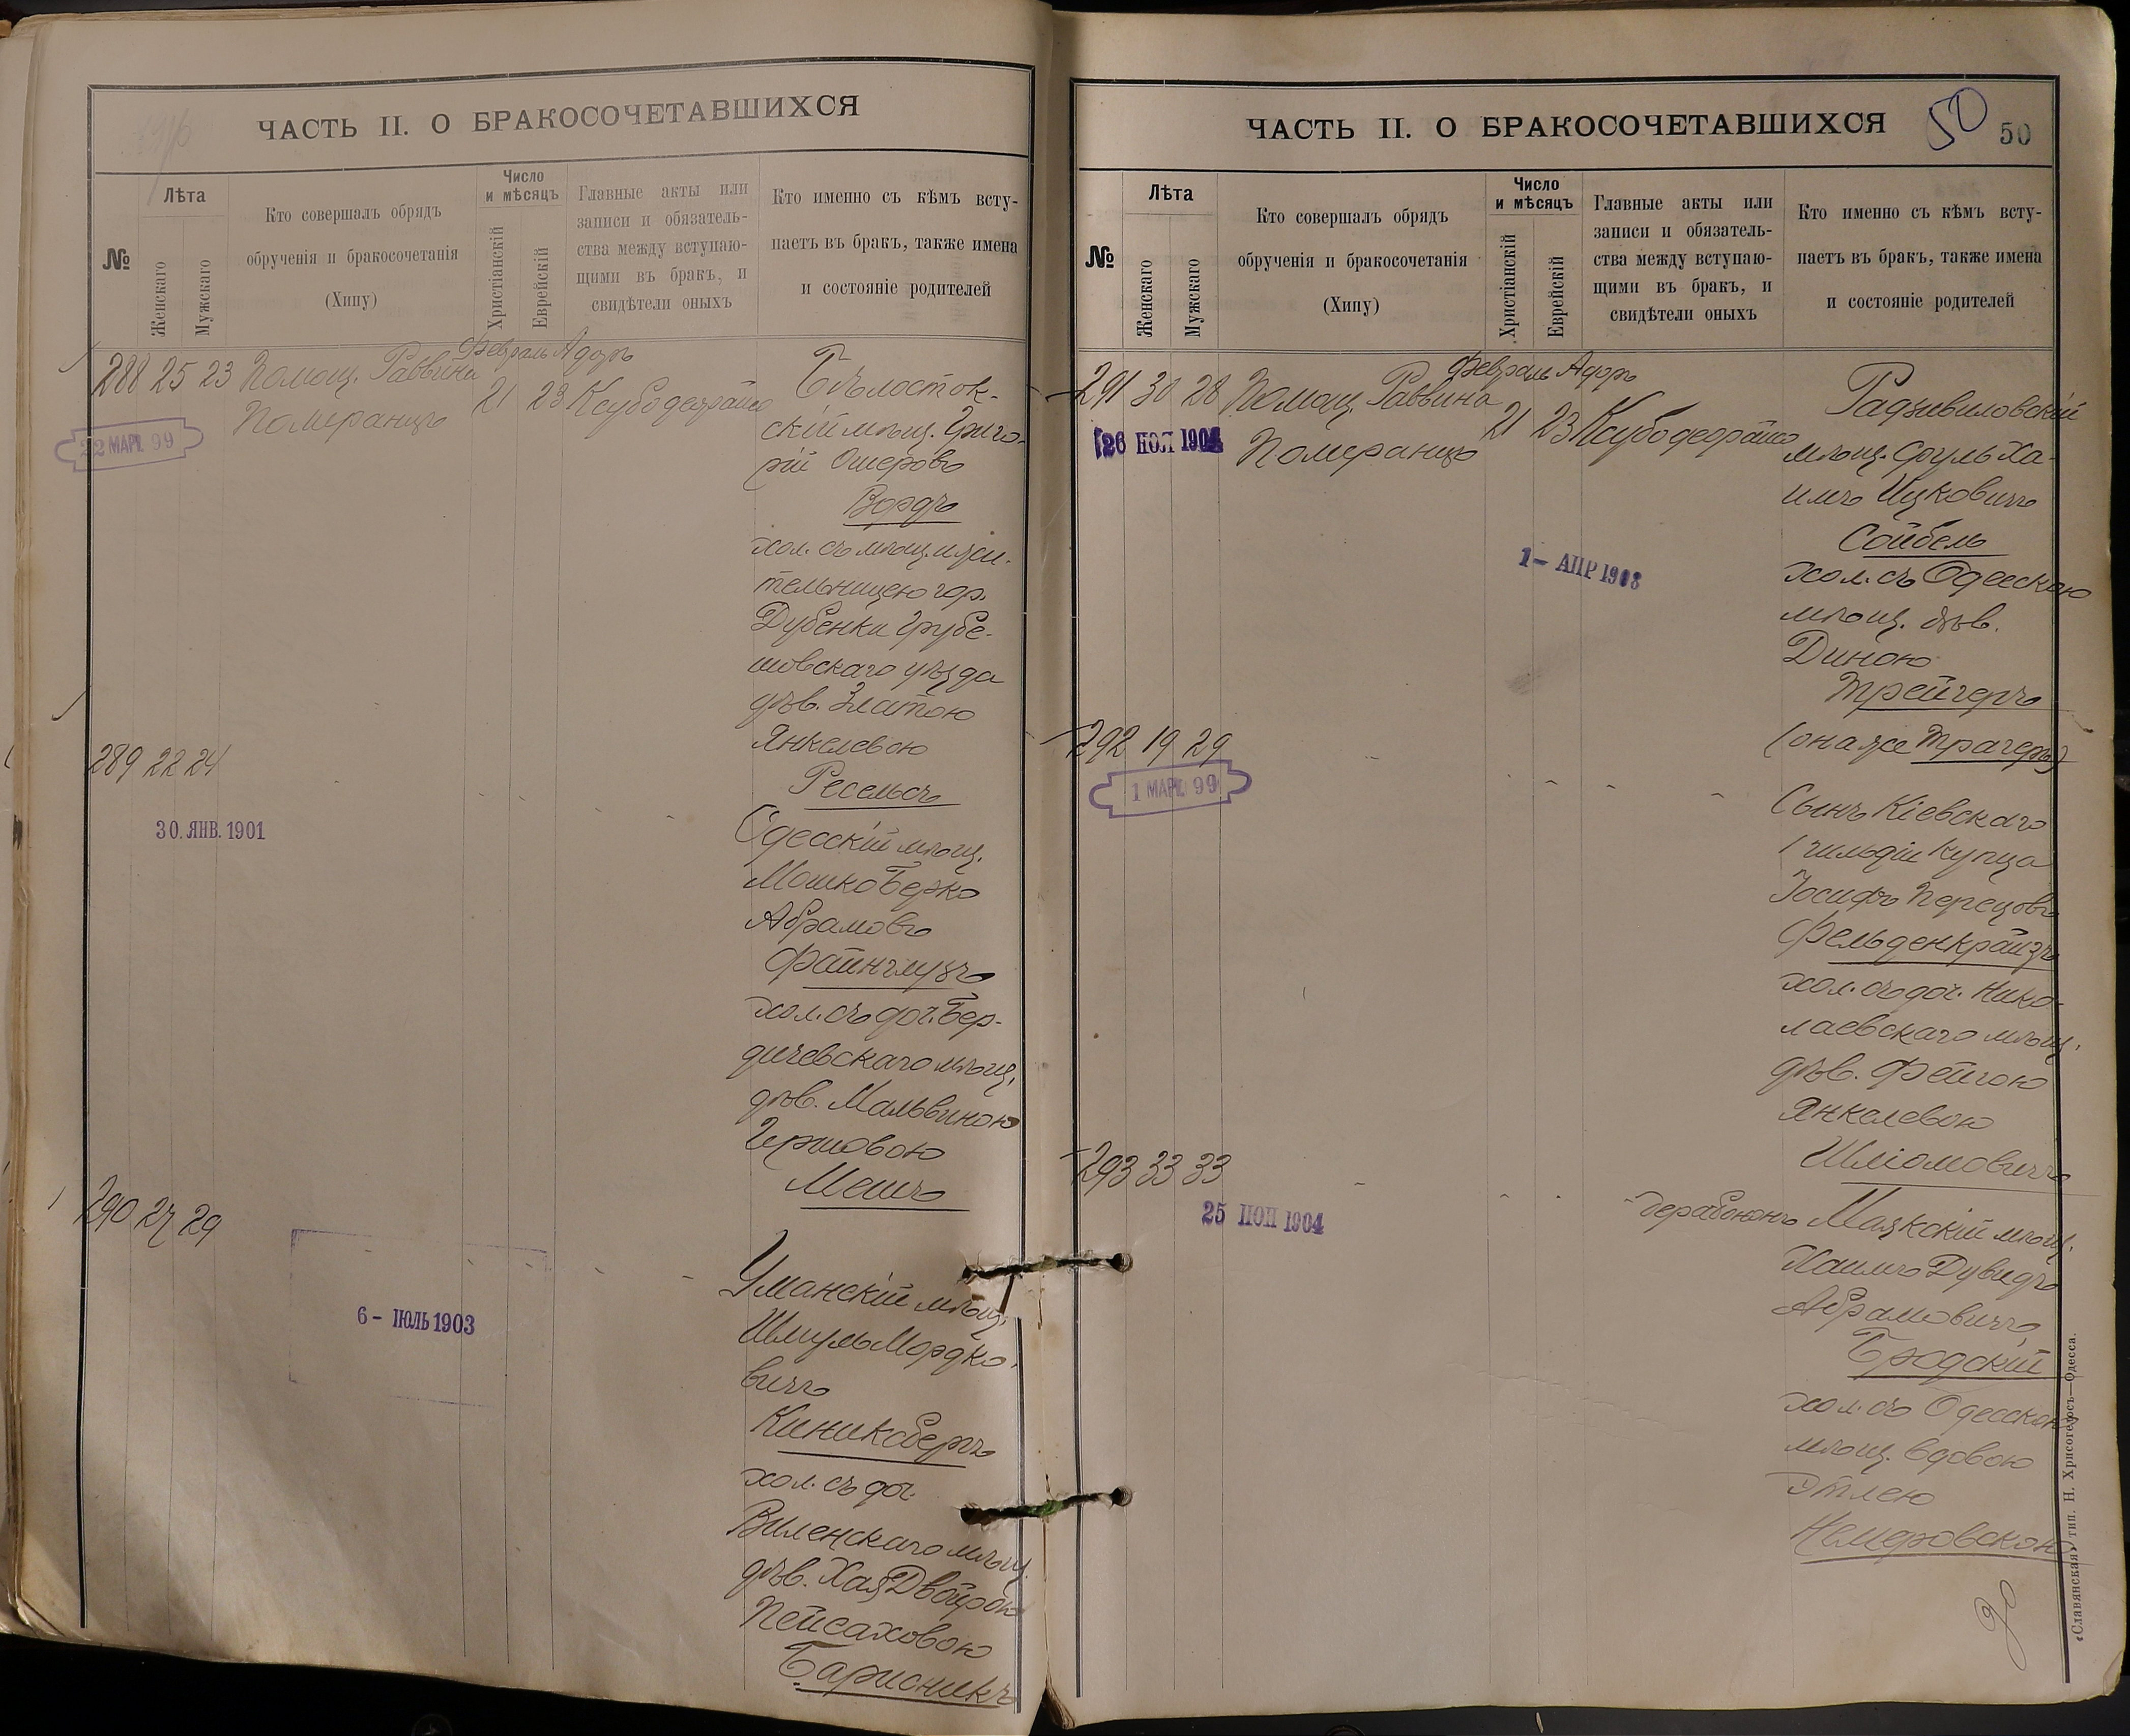 ЧАСТЬ II. О БРАКОСОЧЕТАВШИХСЯ
№
Лѣта
Женскаго
Мужскаго
Кто совершалъ обрядъ
обрученія и бракосочетанія
(Хипу)
Число
и мѣсяцъ
Христіанскій
Еврейскій
Главные акты или
записи и обязатель-
ства между вступаю-
щими въ бракъ, и
свидѣтели оныхъ
Кто именно съ кѣмъ всту-
паетъ въ бракъ, также имена
и состояніе родителей
Февраль Адоръ
288 25 23 Помощ. Раввина
Померанцъ
21 23
22 МАР. 99
Бѣлосток-
скій мѣщ. Григо-
рій Ошеровъ
Вордъ
хол. съ мѣщ. и жи-
тельницею гор.
Дубенки Грубе-
шовскаго уѣзда
дѣв. Златою
Янкелевою
Ресельсъ
289 22 24
30. ЯНВ. 1901
Одесскій мѣщ.
Мошко Берко
Абрамовъ
Файнглузъ
хол. съ доч. Бер-
дичевскаго мѣщ.
дѣв. Мальвиною
Гершовою
Мешъ
290 27 29
6 - ІЮЛЬ 1903
Уманскій мѣщ.
Шмуль Мордко-
вичъ
Киниксбергъ
хол. съ доч.
Виленскаго мѣщ.
дѣв. Хая Двойрою
Пейсаховою
ЧАСТЬ II. О БРАКОСОЧЕТАВШИХСЯ
50
50
№
Лѣта
Женскаго
Мужскаго
Кто совершалъ обрядъ
обрученія и бракосочетанія
(Хипу)
Число
и мѣсяцъ
Христіанскій
Еврейскій
Главные акты или
записи и обязатель-
ства между вступаю-
щими въ бракъ, и
свидѣтели оныхъ
Кто именно съ кѣмъ всту-
паетъ въ бракъ, также имена
и состояніе родителей
Февраль Адоръ
291 30 28 Помощ. Раввина
Померанцъ
21 23
1 - АПР 1903
Радзивиловскій
мѣщ. Сруль Ха-
имъ Ицковичъ
Сойбель
хол. съ Одесскою
мѣщ. дѣв.
Диною
Трейгеръ
(она же Трагеръ)
292 19 29
1 МАР. 99
Сынъ Кіевскаго
1 гильдіи Купца
Іосифъ Перецовъ
Фельденкрайзъ
хол. съ доч. Нико-
лаевскаго мѣщ.
дѣв. Фейгою
Янкелевою
Шліомовичъ
293 33 33
Маякскій мѣщ.
Хаимъ Дувидъ
Абрамовичъ
Бродскій
хол. съ Одесскою
мѣщ. вдовою
Этлею
Немировскою
«Славянская» тип. Н. Хрисогелосъ—Одесса.